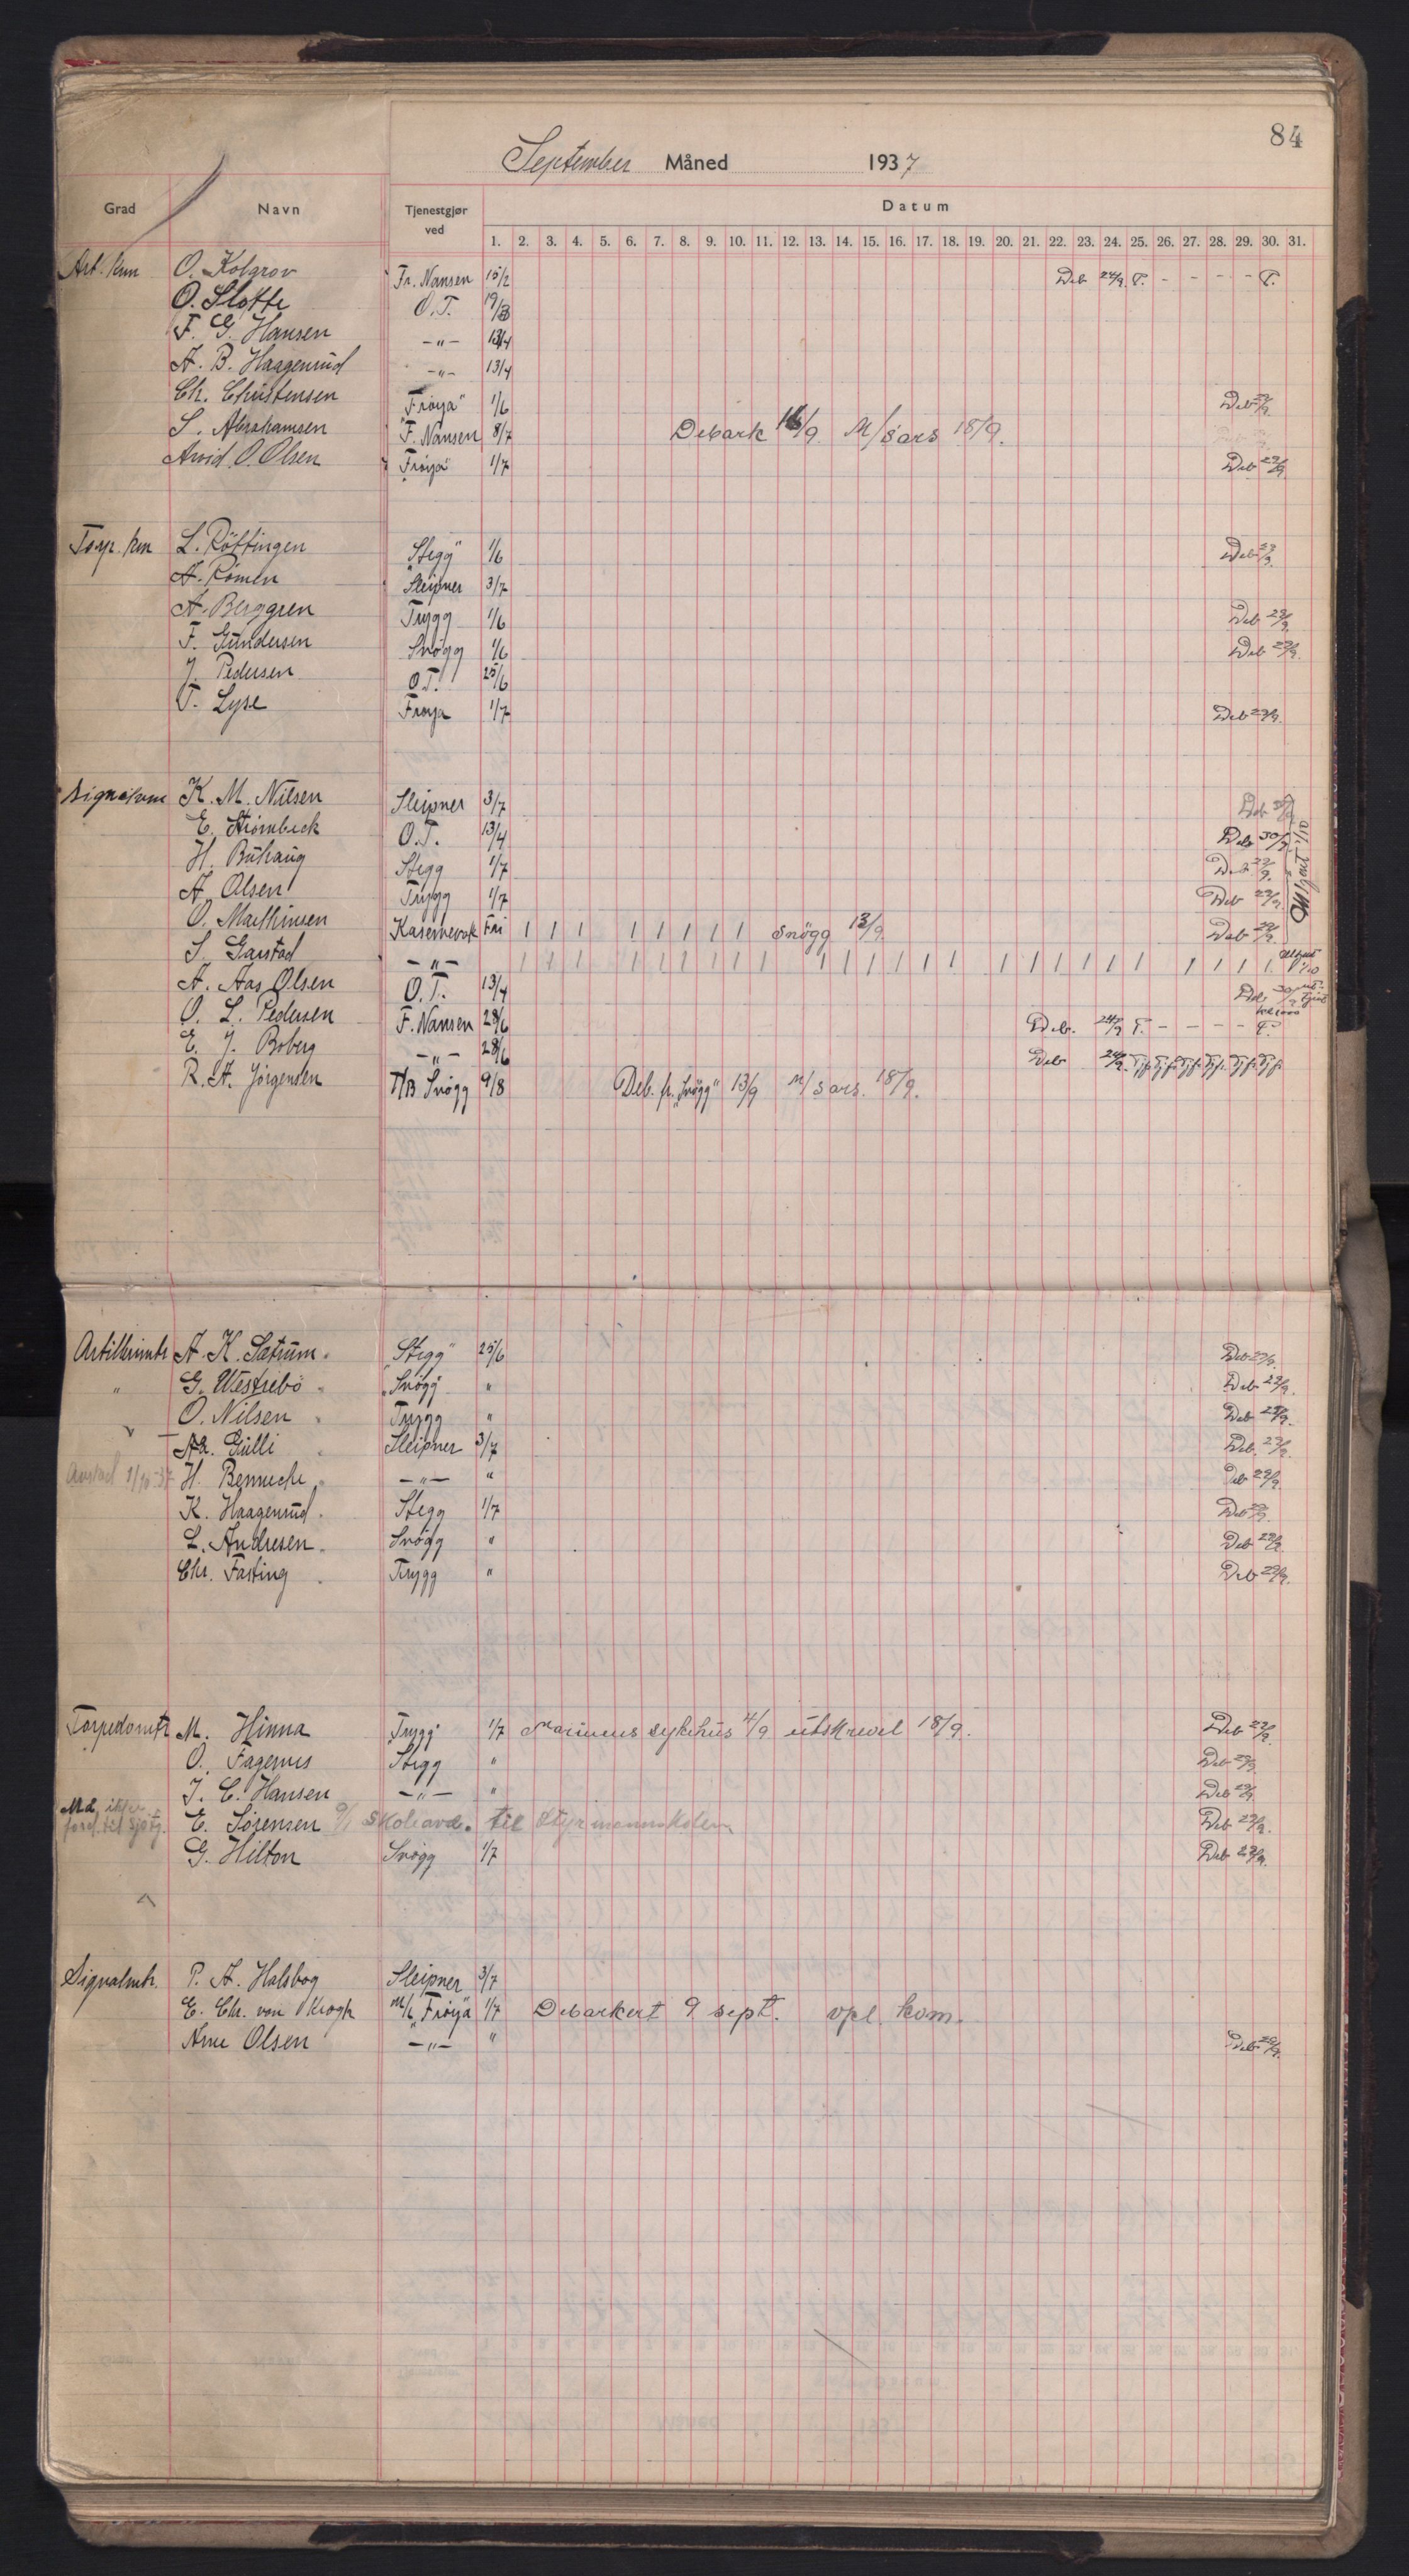 84
September Måned 1937
Grad Navn Tjenestgjør ved Datum
1. 2. 3. 4. 5. 6. 7. 8. 9. 10. 11. 12. 13. 14. 15. 16. 17. 18. 19. 20. 21. 22. 23. 24. 25. 26. 27. 28. 29. 30. 31.
Art. kvm O. Kolgrov Fr. Nansen 15/2 Deb 24/9. T. - - - - T.
O. Slotte O.T. 19/8
F. G. Hansen -"- 13/4
A. B. Haagenrud -"- 13/4
Chr. Christensen "Frøya" 1/6 Deb 29/9.
S. Abrahamsen "F. Nansen 8/7 Debark 16/9. M/Sars 18/9.
Arvid O. Olsen "Frøya" 1/7 Deb 29/9.
Torp. kvm L. Röttingen "Stegg" 1/6 Deb 29/9.
A. Römen "Sleipner 3/7
A. Berggren Trygg 1/6 Deb 29/9.
F. Gundersen Snögg 1/6 Deb 29/9.
J. Pedersen O.T. 25/6
T. Lyse Frøya 1/7 Deb 29/9.
Signalkvm K. M. Nilsen Sleipner 3/7 Deb 30/9
E. Strömbeck O.T. 13/4 Deb 30/9
H. Buhaug Stegg 1/7 Deb 29/9.
A. Olsen Trygg 1/7 Deb 29/9.
O. Mathinsen Kasernevakt Fri 1 1 1 1 1 1 1 1 Snögg 13/9 Deb 29/9.
S. Garstad -"- 1 1 1 1 1 1 1 1 1 1 1 1 1 1 1 1 1 1 1 1 1 1 1 1 1 1 1/10
A. Aas Olsen O.T. 13/4 Deb 30/9
O. L. Pedersen F. Nansen 28/6 Deb. 24/9 T. - - - - T.
E. J. Boberg -"- 28/6 Deb 24/9. Tjf. Tjf. Tjf. Tjf. Tjf. Tjf.
R. A. Jörgensen T/B Snögg 9/8 Deb. fr. "Snögg" 13/9 M/Sars. 18/9.
Artillerimtr A. K. Sætrum. "Stegg" 25/6 Deb 29/9.
" G. Westrebö "Snögg" " Deb 29/9.
" O. Nilsen Trygg " Deb 29/9.
Aa. Gulli Sleipner 3/7 Deb. 29/9.
1/10-37 H. Benneche -"- " Deb 29/9.
K. Haagenrud. Stegg 1/7 Deb 29/9.
L. Andresen. Snögg " Deb 29/9.
Chr. Fasting Trygg " Deb 29/9.
Torpedomtr M. Hinna Trygg 1/7 Marinens sykehus 4/9 utskrevet 18/9. Deb 29/9.
O. Fagernes Stegg " Deb 29/9.
J. C. Hansen -"- " Deb 29/9.
E. Sörensen 9/1 Skoleavd. til Styrmannskolen Deb 29/9.
G. Hilton Snögg 1/7 Deb 29/9.
Signalmtr. P. A. Halsbog Sleipner 3/7
E. Chr. von Krogh M/L "Fröya 1/7 Debarkert 9 sept. vpl. kom.
Arne Olsen -"- " Deb 29/9.